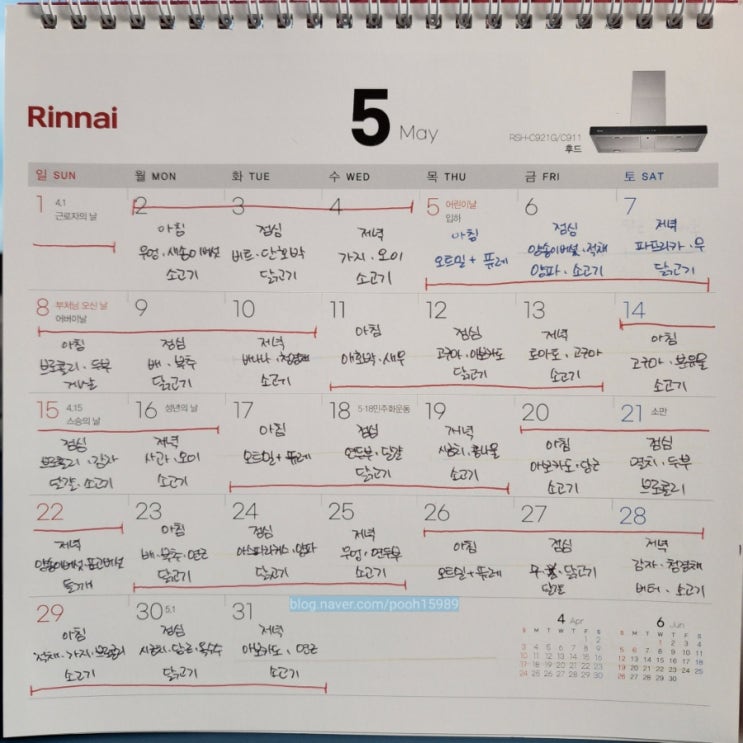 Rinnai
5 May
RSH-C921G/C911
후드
일 SUN 월 MON 화 TUE 수 WED 목 THU 금 FRI 토 SAT
1 4.1 근로자의 날
2 아침 우엉·새송이버섯 소고기
3 점심 비트·단호박 닭고기
4 저녁 가지·오이 소고기
5 어린이날 입하 아침 오트밀 + 퓨레
6 점심 양송이버섯·적채 양파·소고기
7 저녁 파프리카·무 닭고기
8 부처님 오신 날 어버이날 아침 브로콜리·두부 게살
9 점심 배·부추 닭고기
10 저녁 바나나·청경채 소고기
11 아침 애호박·새우
12 점심 고구마·아보카도 닭고기
13 저녁 토마토·고구마 소고기
14 아침 고구마· 소고기
15 4.15 스승의 날 점심 브로콜리·감자 달걀·소고기
16 성년의 날 저녁 사과·오이 소고기
17 아침 오트밀 + 퓨레
18 5·18민주화운동 점심 연두부·달걀 닭고기
19 저녁 콩나물 소고기
20 아침 아보카도·당근 소고기
21 소만 점심 멸치·두부 브로콜리
22 저녁 양송이버섯·표고버섯 들깨
23 아침 배·부추·연근 닭고기
24 점심 아스파라거스·양파 닭고기
25 저녁 우엉·연두부 소고기
26 아침 오트밀 + 퓨레
27 점심 무· 닭고기 달걀
28 저녁 감자·청경채 버터·소고기
29 아침 적채·가지·브로콜리 소고기
30 5.1 점심 시금치·당근·옥수수 닭고기
31 저녁 아보카도·연근 소고기
blog.naver.com/pooh15989
4 Apr
S M T W T F S
1 2
3 4 5 6 7 8 9
10 11 12 13 14 15 16
17 18 19 20 21 22 23
24 25 26 27 28 29 30
6 Jun
S M T W T F S
1 2 3 4
5 6 7 8 9 10 11
12 13 14 15 16 17 18
19 20 21 22 23 24 25
26 27 28 29 30